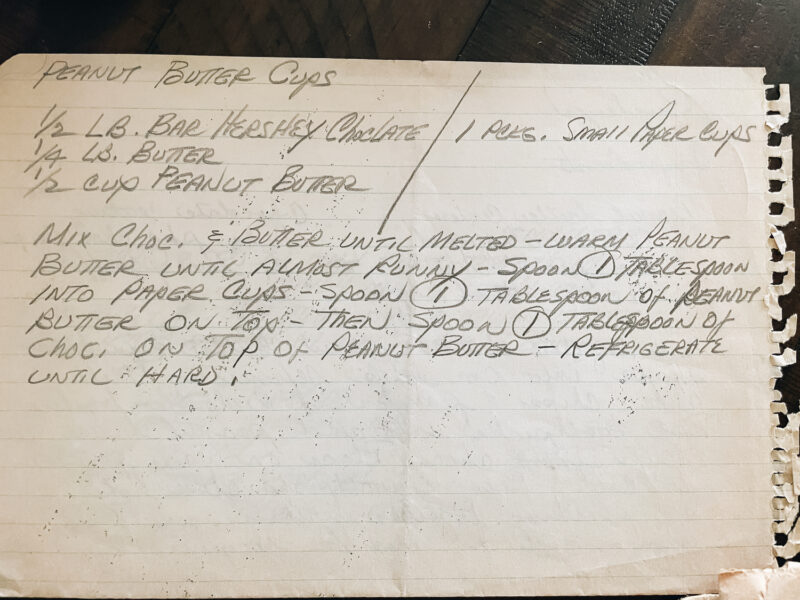 Peanut Butter Cups
1/2 lb. Bar Hershey Choclate / 1 pckg. Small Paper Cups
1/4 lb. Butter
1/2 cup Peanut Butter
Mix Choc. & Butter until melted - warm Peanut
Butter until almost runny - Spoon 1 Tablespoon
into paper cups - spoon 1 tablespoon of peanut
butter on top - then spoon 1 tablespoon of
choc. on top of peanut butter - refrigerate
until hard.